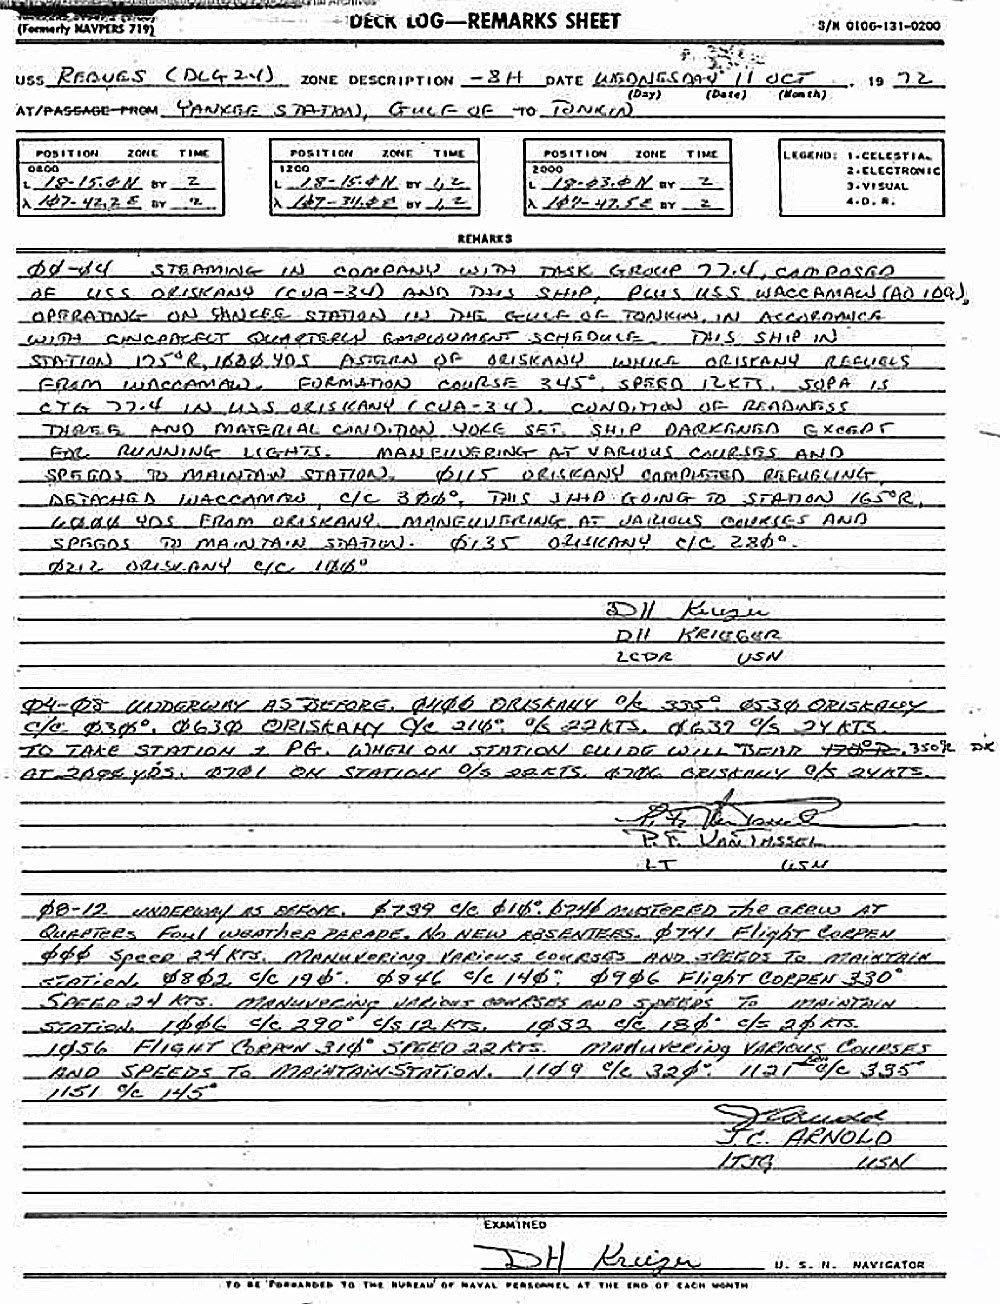 (Formerly NAVPERS 719)
DECK LOG—REMARKS SHEET
S/N 0106-131-0200
USS REEVES (DLG 24) ZONE DESCRIPTION -8H DATE WEDNESDAY 11 OCT , 19 72
(Day) (Date) (Month)
AT/PASSAGE FROM YANKEE STATION, GULF OF TO TONKIN
POSITION ZONE TIME
0800
L 18-15.0 N BY 2
λ 107-42.2 E BY 2
POSITION ZONE TIME
1200
L 18-15.0 N BY 1,2
λ 107-34.0 E BY 1,2
POSITION ZONE TIME
2000
L 18-03.0 N BY 2
λ 107-47.5 E BY 2
LEGEND: 1-CELESTIAL
2-ELECTRONIC
3-VISUAL
4-D. R.
REMARKS
ØØ-Ø4 STEAMING IN COMPANY WITH TASK GROUP 77.4, COMPOSED
OF USS ORISKANY (CVA-34) AND THIS SHIP, PLUS USS WACCAMAW (AO 109),
OPERATING ON YANKEE STATION IN THE GULF OF TONKIN, IN ACCORDANCE
WITH CINCPACFLT QUARTERLY EMPLOYMENT SCHEDULE. THIS SHIP IN
STATION 175°R, 1ØØØ YDS ASTERN OF ORISKANY WHILE ORISKANY REFUELS
FROM WACCAMAW. FORMATION COURSE 345°, SPEED 12KTS. SOPA IS
CTG 77.4 IN USS ORISKANY (CVA-34). CONDITION OF READINESS
THREE AND MATERIAL CONDITION YOKE SET. SHIP DARKENED EXCEPT
FOR RUNNING LIGHTS. MANEUVERING AT VARIOUS COURSES AND
SPEEDS TO MAINTAIN STATION. Ø115 ORISKANY COMPLETED REFUELING,
DETACHED WACCAMAW, C/C 3ØØ°, THIS SHIP GOING TO STATION 165°R,
YDS FROM ORISKANY. MANEUVERING AT VARIOUS COURSES AND
SPEEDS TO MAINTAIN STATION. Ø135 ORISKANY C/C 28Ø°.
Ø212 ORISKANY C/C 1ØØ°
DH Krieger
DH KRIEGER
LCDR USN
Ø4-Ø8 UNDERWAY AS BEFORE. Ø4Ø6 ORISKANY C/C 335° Ø53Ø ORISKANY
C/C Ø3Ø°. Ø63Ø ORISKANY C/C 21Ø° C/S 22KTS. Ø637 C/S 24 KTS.
TO TAKE STATION 1 PG. WHEN ON STATION GUIDE WILL BEAR 350°R DK
AT 2ØØØ YDS. Ø7Ø1 ON STATION C/S 22KTS. ORISKANY C/S 24KTS.
P.F. VanTassel
P.F. VANTASSEL
LT USN
Ø8-12 UNDERWAY AS BEFORE. Ø739 C/C Ø1Ø°. Ø74Ø MUSTERED THE CREW AT
QUARTERS FOUL WEATHER PARADE. NO NEW ABSENTEES. Ø741 FLIGHT CORPEN
ØØØ SPEED 24 KTS. MANUVERING VARIOUS COURSES AND SPEEDS TO MAINTAIN
STATION. Ø8Ø2 C/C 19Ø°. Ø846 C/C 14Ø°. Ø9Ø6 FLIGHT CORPEN 33Ø°
SPEED 24 KTS. MANUVERING VARIOUS COURSES AND SPEEDS TO MAINTAIN
STATION. 1ØØ6 C/C 29Ø° C/S 12 KTS. 1Ø32 C/C 18Ø° C/S 2Ø KTS.
1Ø56 FLIGHT CORPEN 31Ø° SPEED 22 KTS. MANUVERING VARIOUS COURSES
AND SPEEDS TO MAINTAIN STATION. 11Ø9 C/C 32Ø°. 1121 C/C 335°
1151 C/C 145°
JC Arnold
J.C. ARNOLD
LTJG USN
EXAMINED
DH Krieger U. S. N. NAVIGATOR
TO BE FORWARDED TO THE BUREAU OF NAVAL PERSONNEL AT THE END OF EACH MONTH